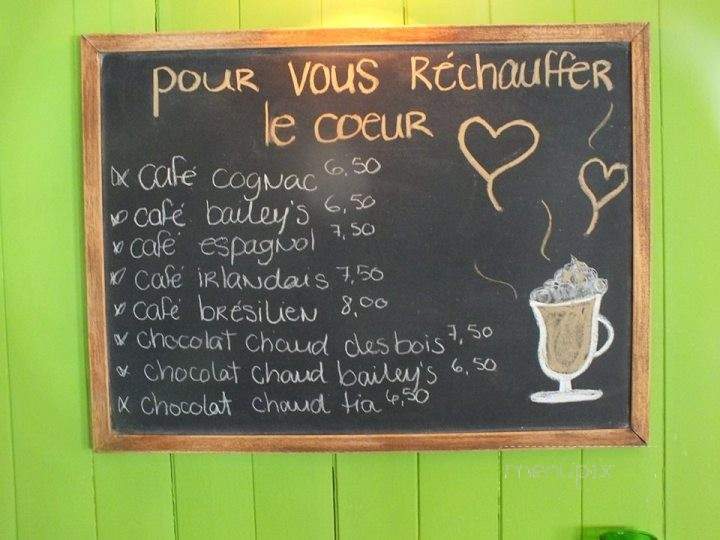 Pour vous Réchauffer
le coeur
café cognac 6,50
café bailey's 6,50
café espagnol 7,50
café irlandais 7,50
café brésilien 8,00
chocolat chaud des bois 7,50
chocolat chaud bailey's 6,50
chocolat chaud tia 6,50
menupix